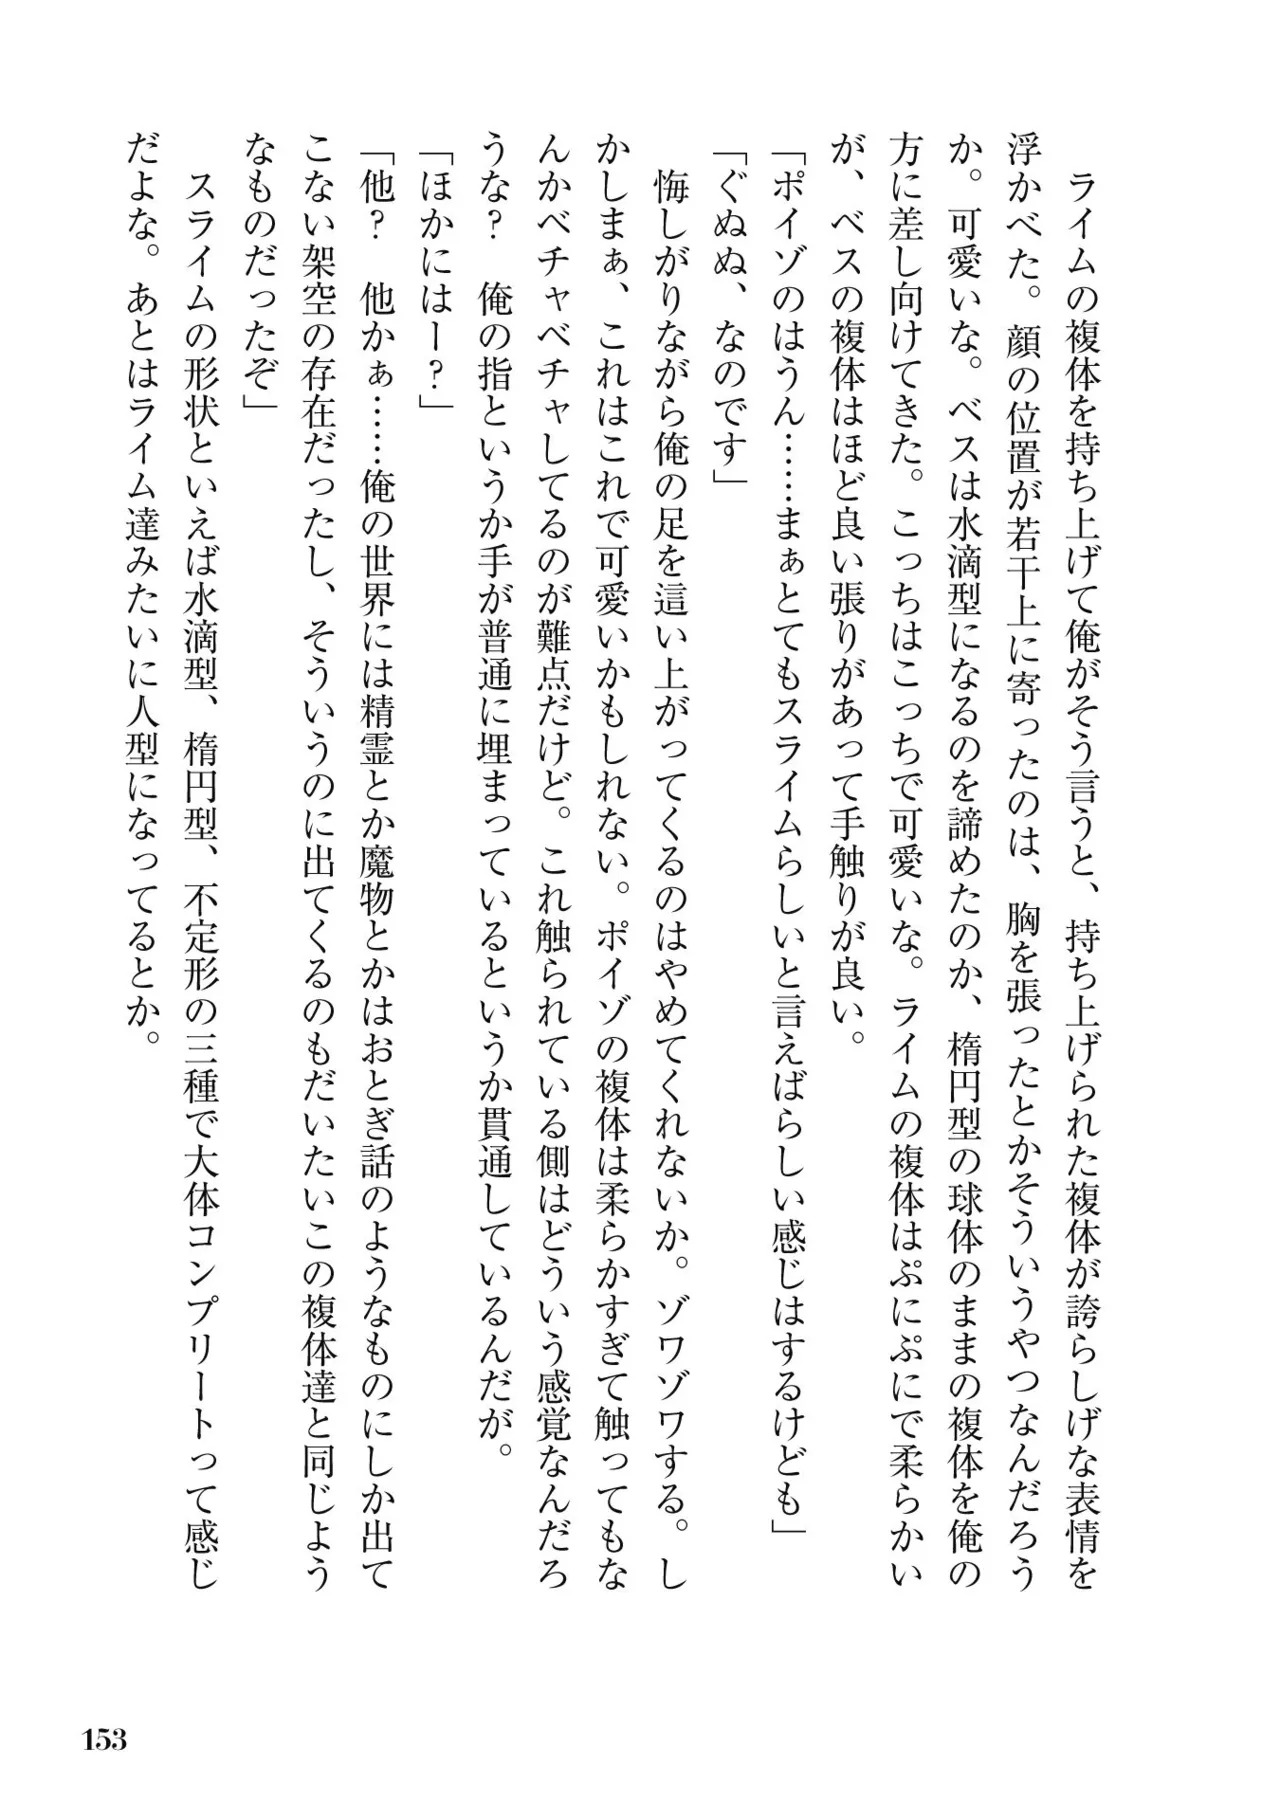 ライムの複体を持ち上げて俺がそう言うと、持ち上げられた複体が誇らしげな表情を
浮かべた。顔の位置が若干上に寄ったのは、胸を張ったとかそういうやつなんだろう
か。可愛いな。ベスは水滴型になるのを諦めたのか、楕円型の球体のままの複体を俺の
方に差し向けてきた。こっちはこっちで可愛いな。ライムの複体はぷにぷにで柔らかい
が、ベスの複体はほど良い張りがあって手触りが良い。
「ポイゾのはうん……まぁとてもスライムらしいと言えばらしい感じはするけども」
「ぐぬぬ、なのです」
　悔しがりながら俺の足を這い上がってくるのはやめてくれないか。ゾワゾワする。し
かしまぁ、これはこれで可愛いかもしれない。ポイゾの複体は柔らかすぎて触ってもな
んかベチャベチャしてるのが難点だけど。これ触られている側はどういう感覚なんだろ
うな？　俺の指というか手が普通に埋まっているというか貫通しているんだが。
「ほかにはー？」
「他？　他かぁ……俺の世界には精霊とか魔物とかはおとぎ話のようなものにしか出て
こない架空の存在だったし、そういうのに出てくるのもだいたいこの複体達と同じよう
なものだったぞ」
　スライムの形状といえば水滴型、楕円型、不定形の三種で大体コンプリートって感じ
だよな。あとはライム達みたいに人型になってるとか。
153